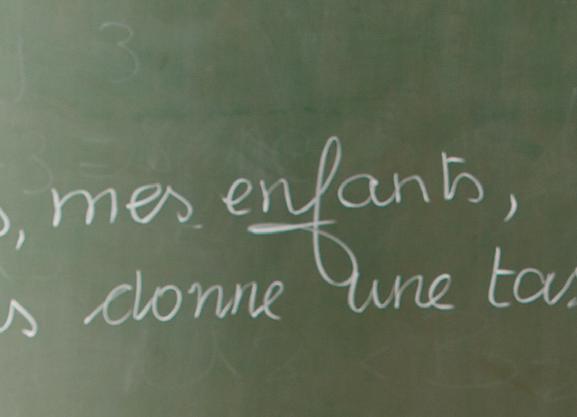 s, mes enfants,
s donne une tas